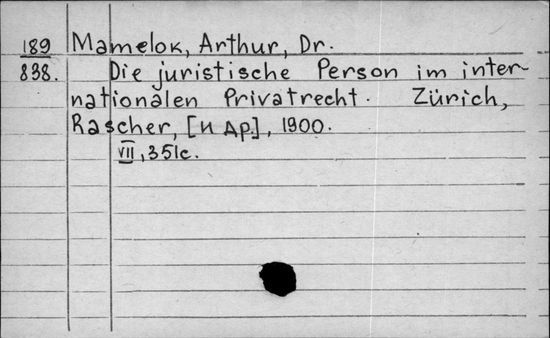 189 Mamelok, Arthur, Dr.
838. Die juristische Person im inter-
nationalen Privatrecht. Zürich,
Rascher, [и др.], 1900.
VII, 351с.